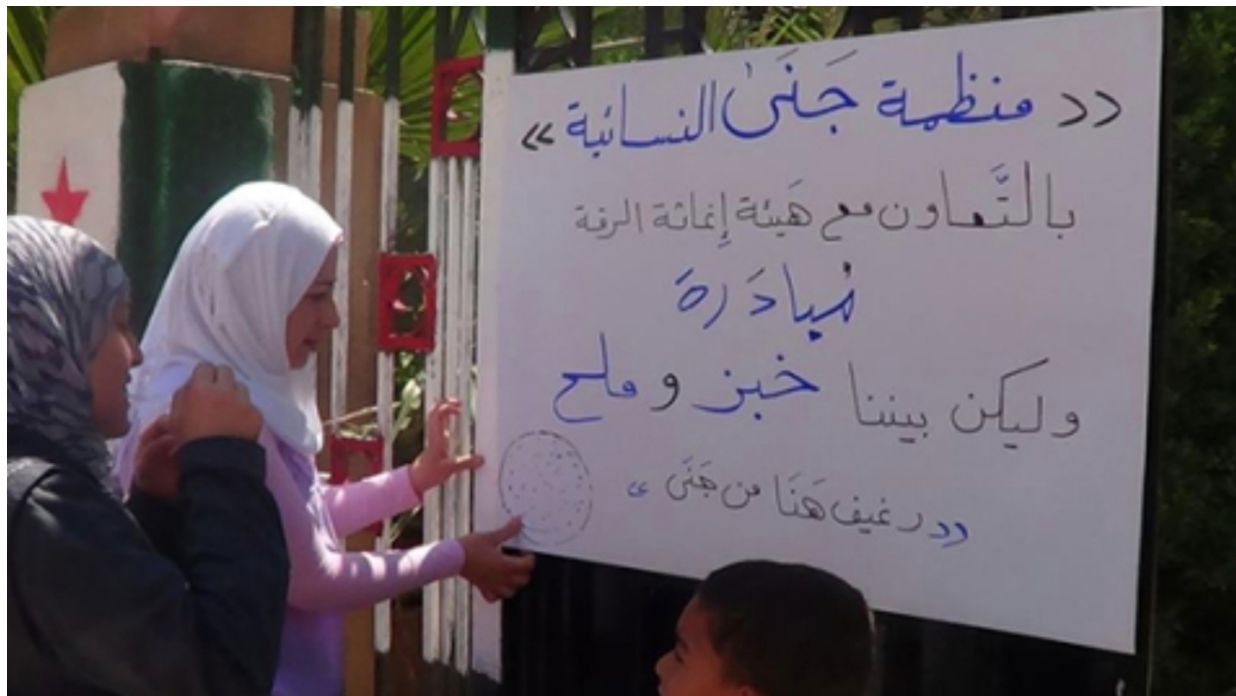 «منظمة جَنَىٰ النسائية»
بالتَّعاون مع هَيئة إِغاثة الرقة
مُبادَرة
وليكن بيننا خبز و ملح
«رغيف هَنَا من جَنَى»